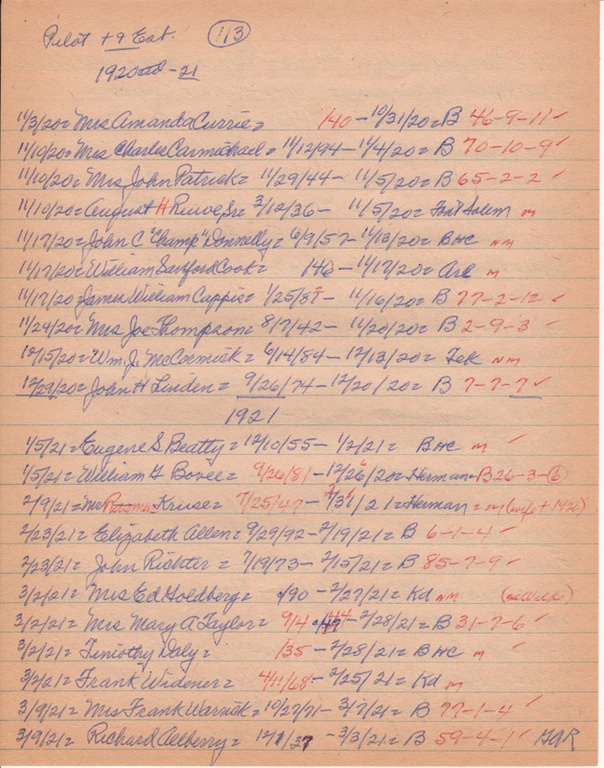 Pilot + 9 Eat. 113
1920 - 21
11/3/20 = Mrs Amanda Currie = 1/40 - 10/31/20 = B 46-9-11 ✓
11/10/20 = Mrs Charlie Carmichael = 11/12/94 - 11/4/20 = B 70-10-9 ✓
11/10/20 = Mrs John Patrick = 11/29/44 - 11/5/20 = B 65-2-2 ✓
11/10/20 = August H Ruwe Sr = 2/12/36 - 11/5/20 = Salem m
11/17/20 = John C "Champ" Donnelly = 6/9/57 - 11/13/20 = BHC nm
11/17/20 = William Cook = 146 - 11/17/20 = Ark m
11/17/20 James William Cappis = 1/25/87 - 11/16/20 = B 77-2-12 ✓
11/24/20 = Mrs Joe Thompson = 8/7/42 - 11/20/20 = B 2-9-3 ✓
12/15/20 = Wm. J. McCormick = 6/14/84 - 12/13/20 = Tek nm
12/29/20 = John H Linden = 9/26/74 - 12/20/20 = B 7-7-7 ✓
1921
1/5/21 = Eugene S Beatty = 12/10/55 - 1/2/21 = BHC m ✓
1/5/21 = William G Bovee = 9/26/81 - 12/26/20 = Herman = B 26-3-6 ✓
2/9/21 = Mrs Kruse = 7/25/47 - 2/3/21 = Herman = m (wife + 1920)
2/23/21 = Elizabeth Allen = 9/29/92 - 2/19/21 = B 6-1-4 ✓
2/23/21 = John Richter = 7/19/73 - 2/15/21 = B 85-7-9 ✓
3/2/21 = Mrs Ed Goldberg = 90 - 2/27/21 = Kd nm
3/2/21 = Mrs Mary A Taylor = 9/4 44 - 2/28/21 = B 31-7-6 ✓
3/2/21 = Timothy Daly = 1/35 - 2/28/21 = BHC m ✓
3/2/21 = Frank Widener = 4/11/68 - 2/25/21 = Kd m
3/9/21 = Mrs Frank Warnick = 10/27/71 - 3/7/21 = B 77-1-4 ✓
3/9/21 = Richard Allberry = 12/1/37 - 3/3/21 = B 59-4-1 ✓ GAR